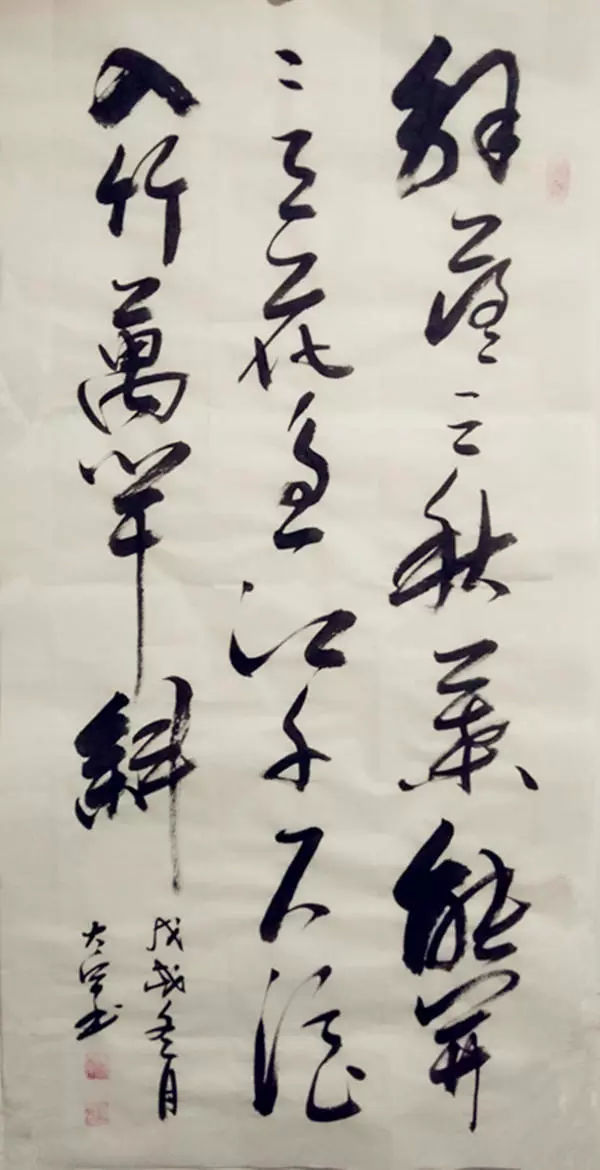 解落三秋葉能開
二月花過江千尺浪
入竹萬竿斜
戊戌冬月
书